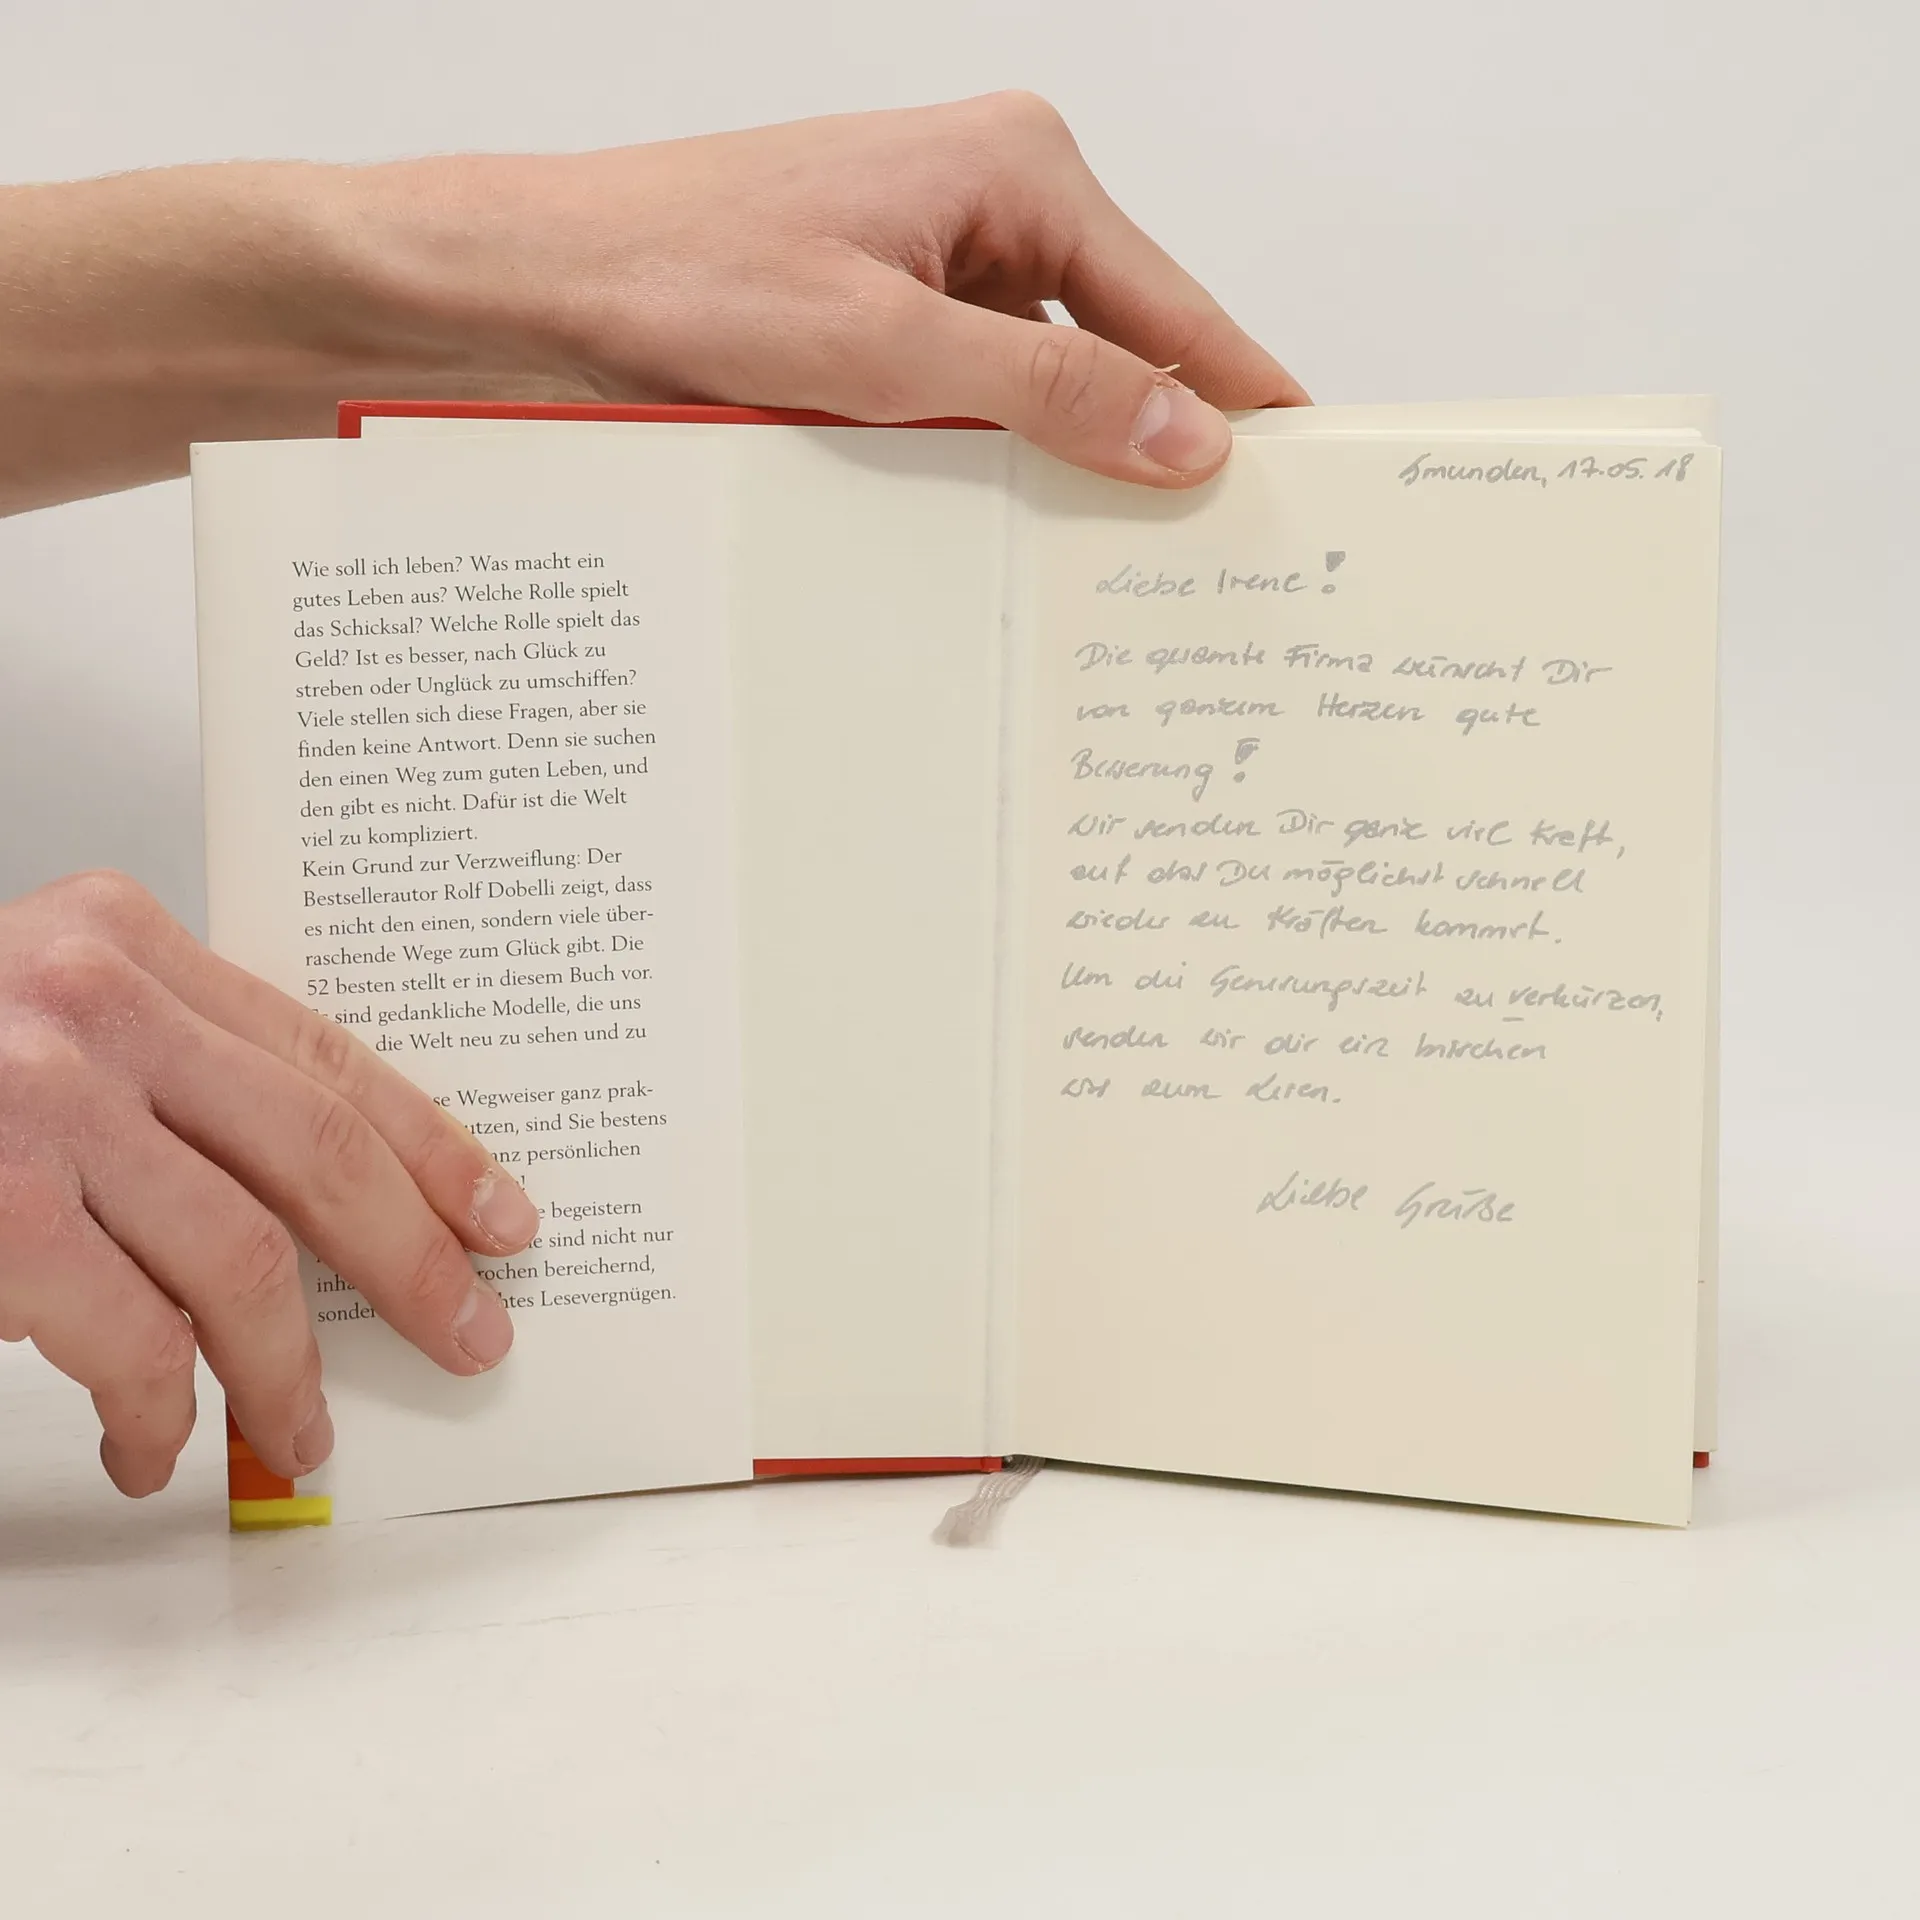 Wie soll ich leben? Was macht ein
gutes Leben aus? Welche Rolle spielt
das Schicksal? Welche Rolle spielt das
Geld? Ist es besser, nach Glück zu
streben oder Unglück zu umschiffen?
Viele stellen sich diese Fragen, aber sie
finden keine Antwort. Denn sie suchen
den einen Weg zum guten Leben, und
den gibt es nicht. Dafür ist die Welt
viel zu kompliziert.
Kein Grund zur Verzweiflung: Der
Bestsellerautor Rolf Dobelli zeigt, dass
es nicht den einen, sondern viele über-
raschende Wege zum Glück gibt. Die
52 besten stellt er in diesem Buch vor.
sind gedankliche Modelle, die uns
die Welt neu zu sehen und zu
Wegweiser ganz prak-
sind Sie bestens
persönlichen
begeistern
sind nicht nur
bereichernd,
Lesevergnügen.
Gmunden, 17.05.18
Liebe Irene!
Die gesamte Firma wünscht Dir
von ganzem Herzen gute
Besserung!
Wir senden Dir ganz viel Kraft,
auf das Du möglichst schnell
wieder zu Kräften kommst.
Um die Genesungszeit zu verkürzen,
senden wir dir ein bisschen
was zum Lesen.
Liebe Grüße